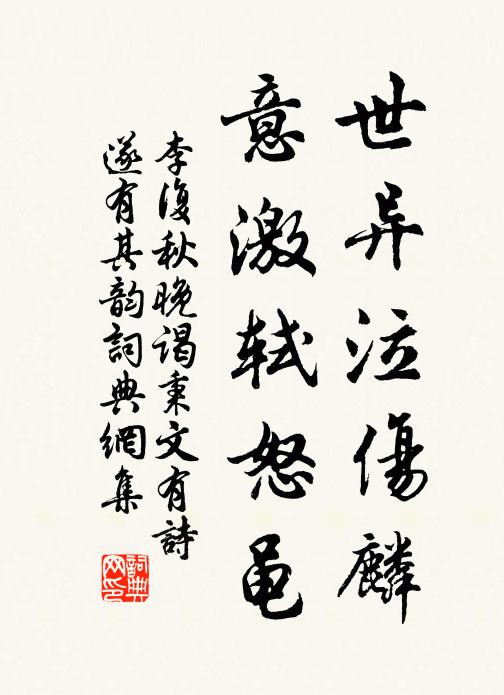 世异泣傷麟
意激軾怒黾
李復秋晚謁秉文有詩
遂有其韵詞典網集
詞典
网印